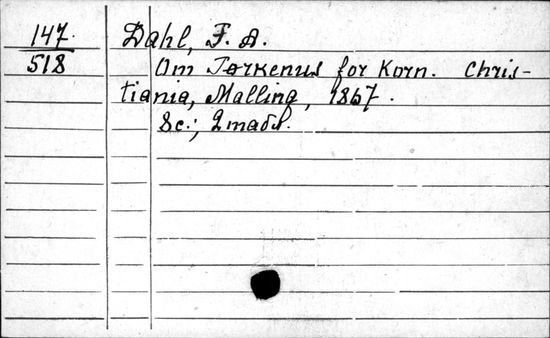 147.
518
Dahl, F. A.
Om Tørkenus for Korn. Chris-
tiania, Malling, 1867.
8c.;